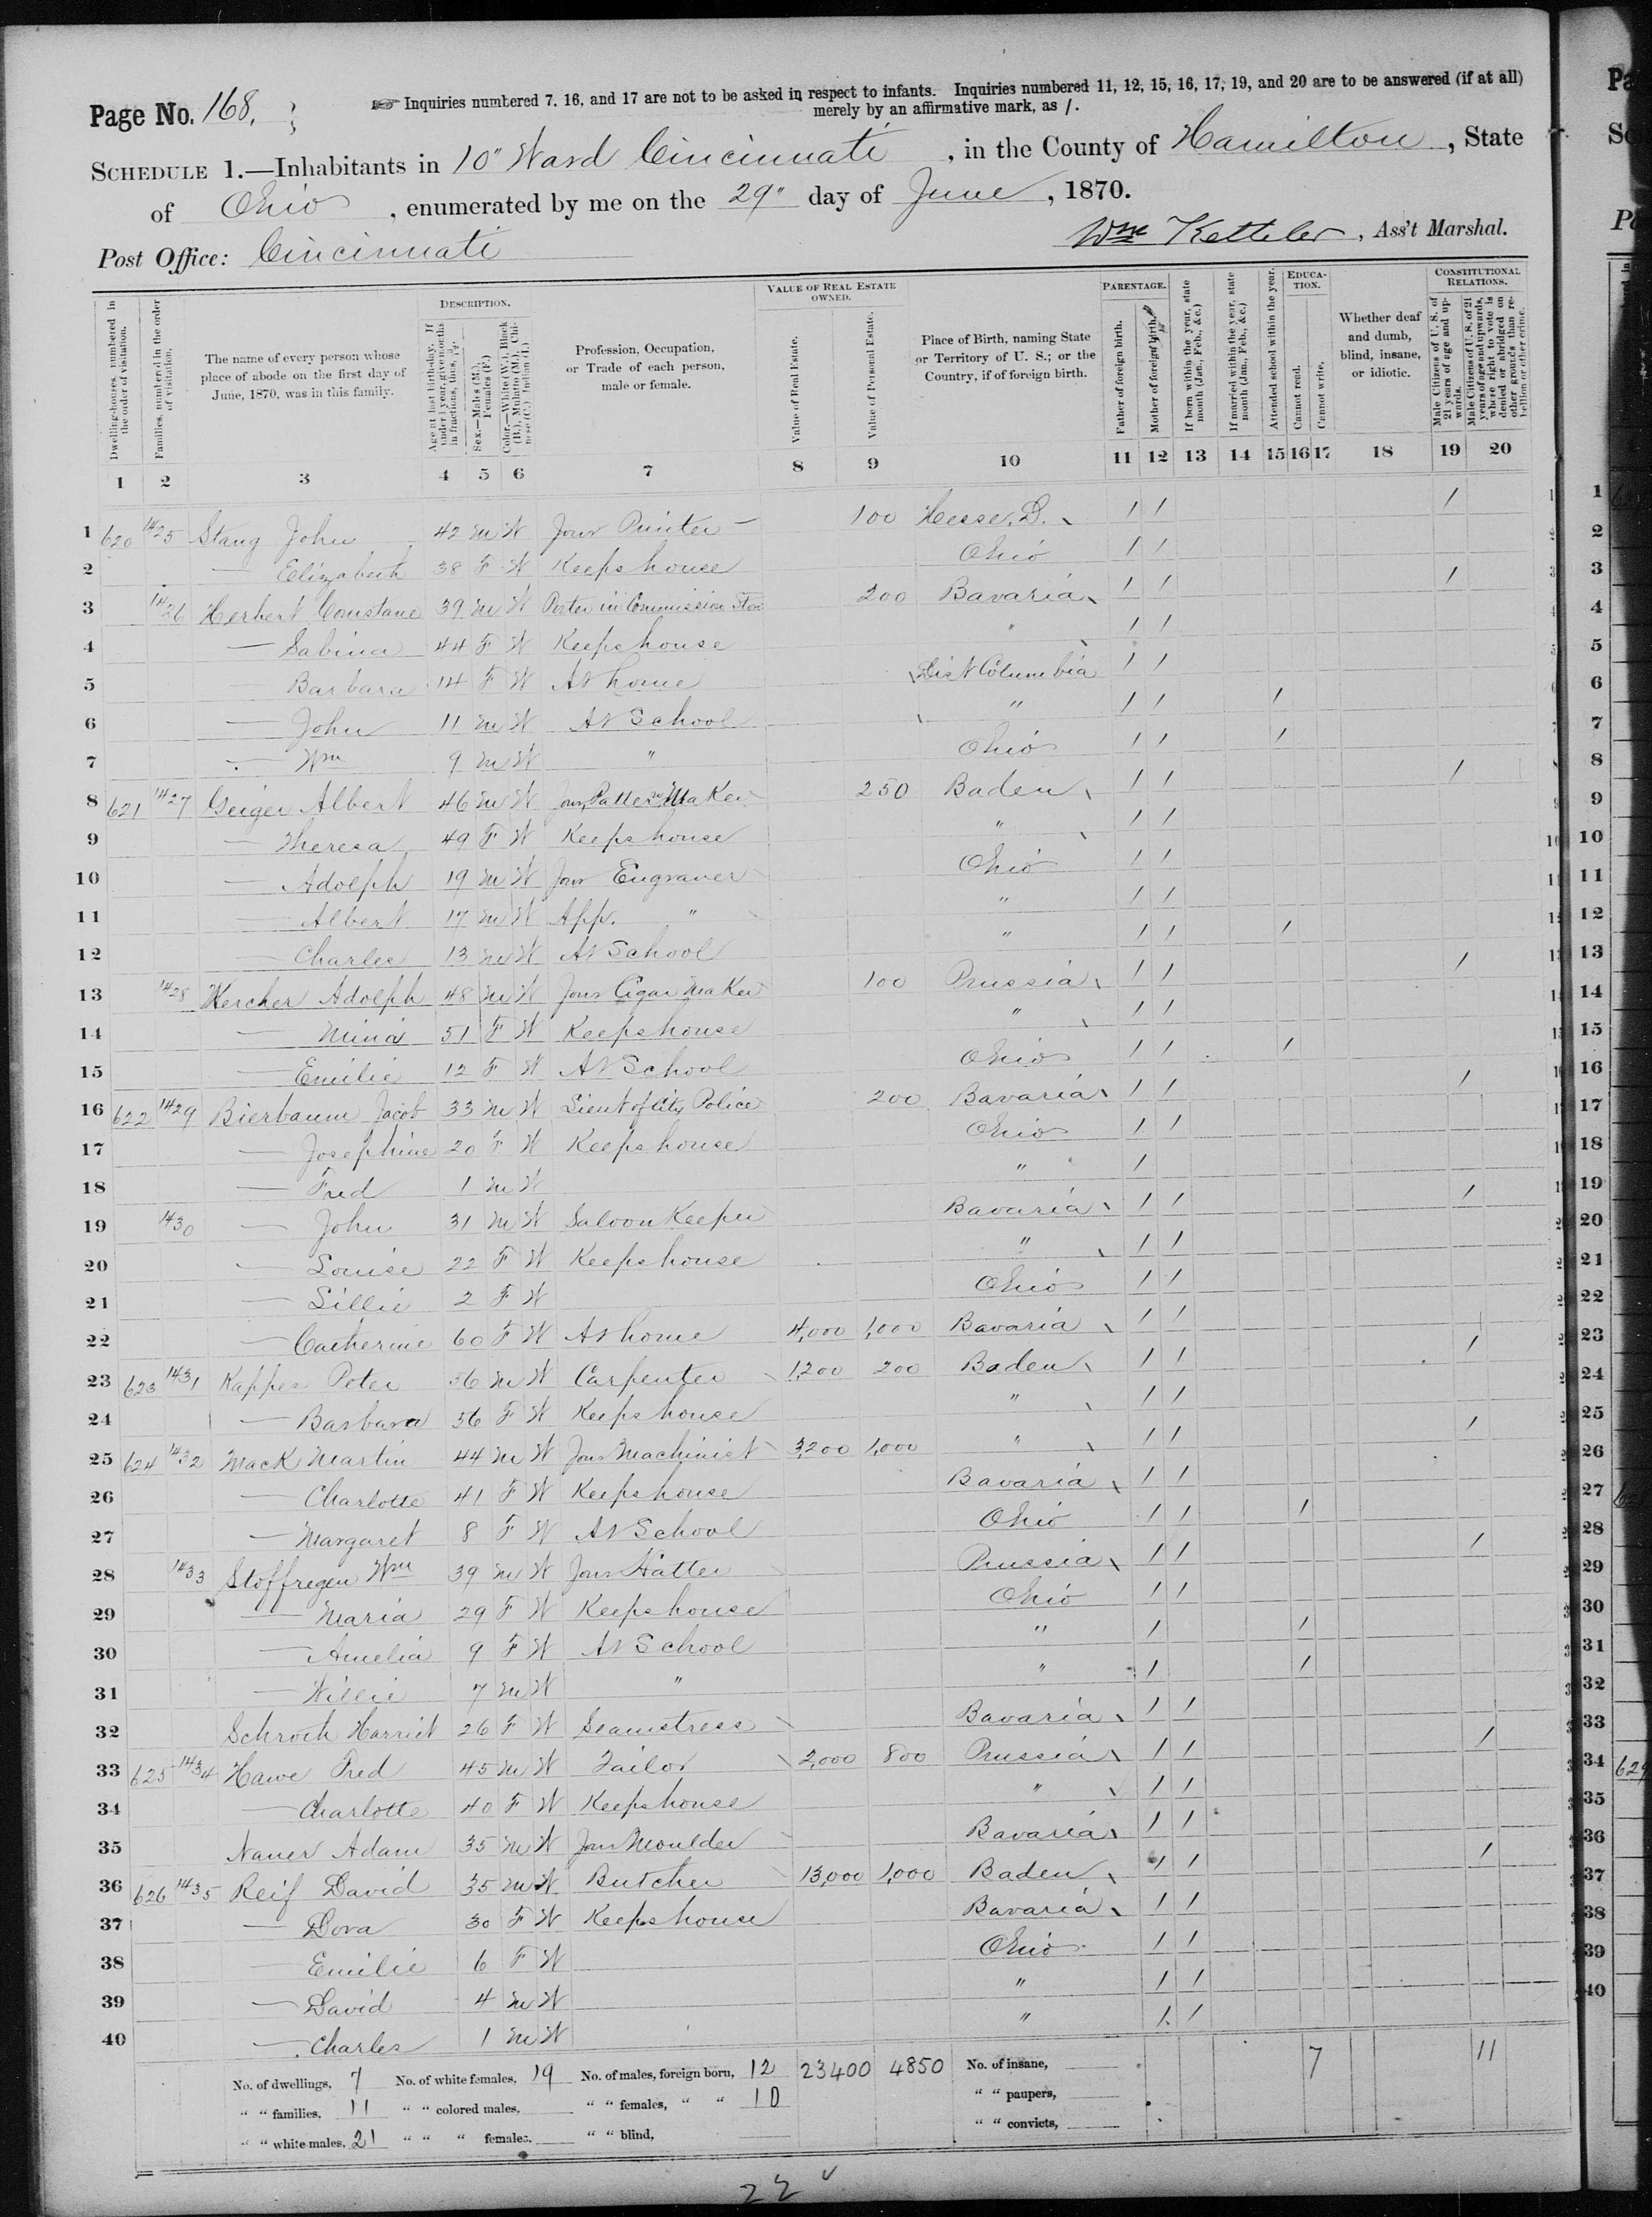 Page No. 168.
☞ Inquiries numbered 7, 16, and 17 are not to be asked in respect to infants. Inquiries numbered 11, 12, 15, 16, 17, 19, and 20 are to be answered (if at all)
merely by an affirmative mark, as /.
SCHEDULE 1.—Inhabitants in 10" Ward Cincinnati, in the County of Hamilton, State
of Ohio, enumerated by me on the 29" day of June, 1870.
Post Office: Cincinnati
Wm Ketteler, Ass't Marshal.
Dwelling-houses, numbered in the order of visitation.
Families, numbered in the order of visitation.
The name of every person whose place of abode on the first day of June, 1870, was in this family.
DESCRIPTION.
Age at last birth-day. If under 1 year, give months in fractions, thus,
Sex.—Males (M.), Females (F.)
Color.—White (W.), Black (B.), Mulatto (M.), Chinese (C.), Indian (I.)
Profession, Occupation, or Trade of each person, male or female.
VALUE OF REAL ESTATE OWNED.
Value of Real Estate.
Value of Personal Estate.
Place of Birth, naming State or Territory of U. S.; or the Country, if of foreign birth.
PARENTAGE.
Father of foreign birth.
Mother of foreign birth.
If born within the year, state month (Jan., Feb., &c.)
If married within the year, state month (Jan., Feb., &c.)
Attended school within the year.
EDUCATION.
Cannot read.
Cannot write.
Whether deaf and dumb, blind, insane, or idiotic.
CONSTITUTIONAL RELATIONS.
Male Citizens of U. S. of 21 years of age and upwards.
Male Citizens of U. S. of 21 years of age and upwards, where right to vote is denied or abridged on other grounds than rebellion or other crime.
1 2 3 4 5 6 7 8 9 10 11 12 13 14 15 16 17 18 19 20
1 620 1425 Stang John 42 M W Jour Printer 100 Hesse D. / / /
2 — Elizabeth 38 F W Keeps house Ohio / /
3 1426 Herbert Constane 39 M W Porter in Commission Stor 200 Bavaria / / /
4 — Sabina 44 F W Keeps house " / /
5 Barbara 14 F W At home Dist Columbia / /
6 — John 11 M W At School " / / /
7 — Wm 9 M W " Ohio / / /
8 621 1427 Geiger Albert 46 M W Jour Pattern Maker 250 Baden / / /
9 — Theresa 49 F W Keeps house " / /
10 — Adolph 19 M W Jour Engraver Ohio / /
11 — Albert 17 M W App. " " / /
12 — Charles 13 M W At School " / / /
13 1428 Wercher Adolph 48 M W Jour Cigar Maker 100 Prussia / / /
14 — Mina 51 F W Keeps house " / /
15 — Emilie 12 F W At School Ohio / / /
16 622 1429 Bierbaum Jacob 33 M W Lieut of City Police 200 Bavaria / / /
17 — Josephine 20 F W Keeps house Ohio / /
18 — Fred 1 M W " /
19 1430 — John 31 M W Saloon Keeper Bavaria / / /
20 — Louise 22 F W Keeps house " / /
21 — Lillie 2 F W Ohio / /
22 — Catherine 60 F W At home 4,000 1,000 Bavaria / /
23 623 1431 Kappes Peter 36 M W Carpenter 1,200 200 Baden / / /
24 — Barbara 36 F W Keeps house " / /
25 624 1432 Mack Martin 44 M W Jour Machinist 3,200 1,000 " / / /
26 — Charlotte 41 F W Keeps house Bavaria / /
27 — Margaret 8 F W At School Ohio / / /
28 1433 Stoffregen Wm 39 M W Jour Hatter Prussia / / /
29 — Maria 29 F W Keeps house Ohio / /
30 — Amelia 9 F W At School " / /
31 — Willie 7 M W " " / /
32 Schroth Harriet 26 F W Seamstress Bavaria / /
33 625 1434 Hawe Fred 45 M W Tailor 2,000 800 Prussia / / /
34 — Charlotte 40 F W Keeps house " / /
35 Nauer Adam 35 M W Jour Moulder Bavaria / /
36 626 1435 Reif David 35 M W Butcher 13,000 1,000 Baden / / /
37 — Dora 30 F W Keeps house Bavaria / /
38 Emilie 6 F W Ohio / /
39 — David 4 M W " / /
40 — Charles 1 M W " / /
No. of dwellings, 7 No. of white females, 19 No. of males, foreign born, 12 23400 4850 No. of insane, 7 11
" " families, 11 " " colored males, " " females, " " 10 " " paupers,
" " white males, 21 " " " females, " " blind, " " convicts,
22